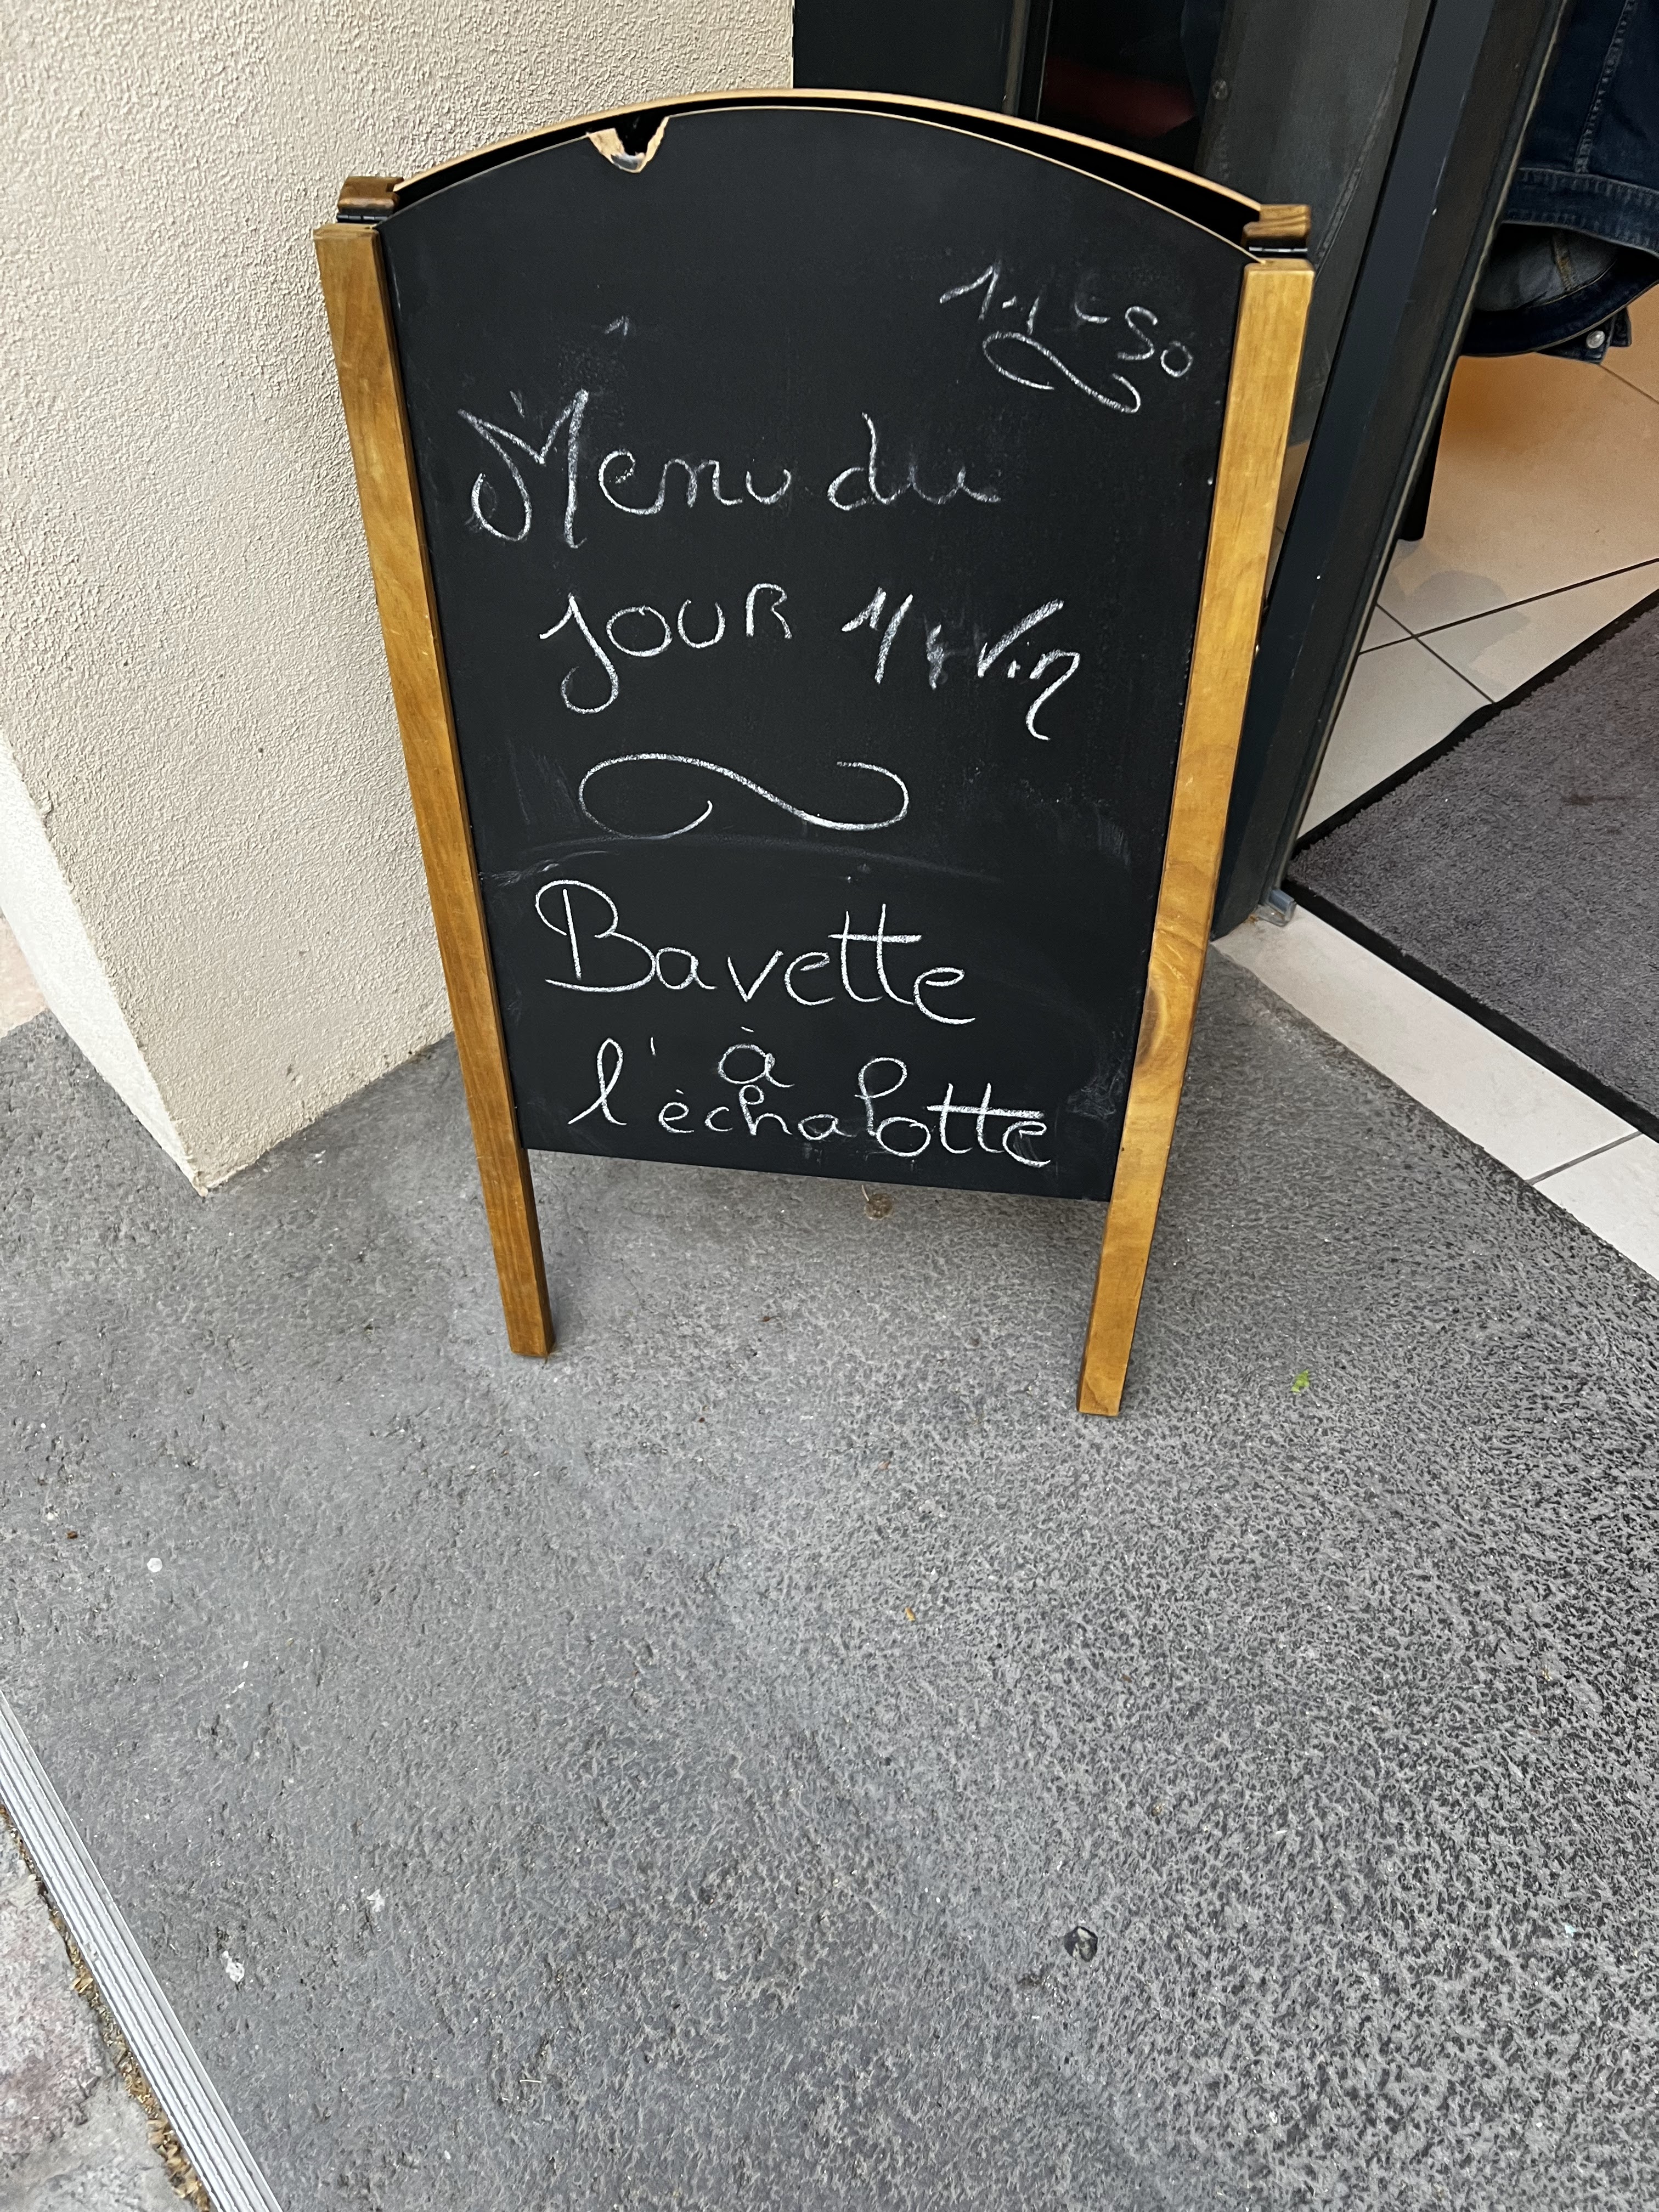 11€50
Menu du
JOUR 1/4 Vin
Bavette
à
l'échalotte